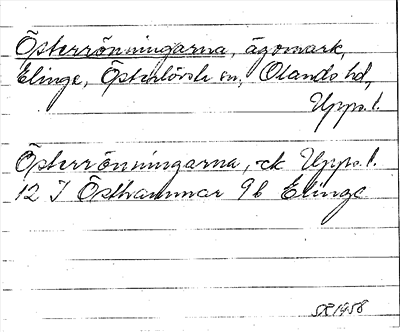 Österrönningarna, ägomark,
Elinge, Österlövsta sn, Olands hd,
Upps. l.
Österrönningarna, -ek Upps. l.
12 I Östhammar 9b Elinge
1958